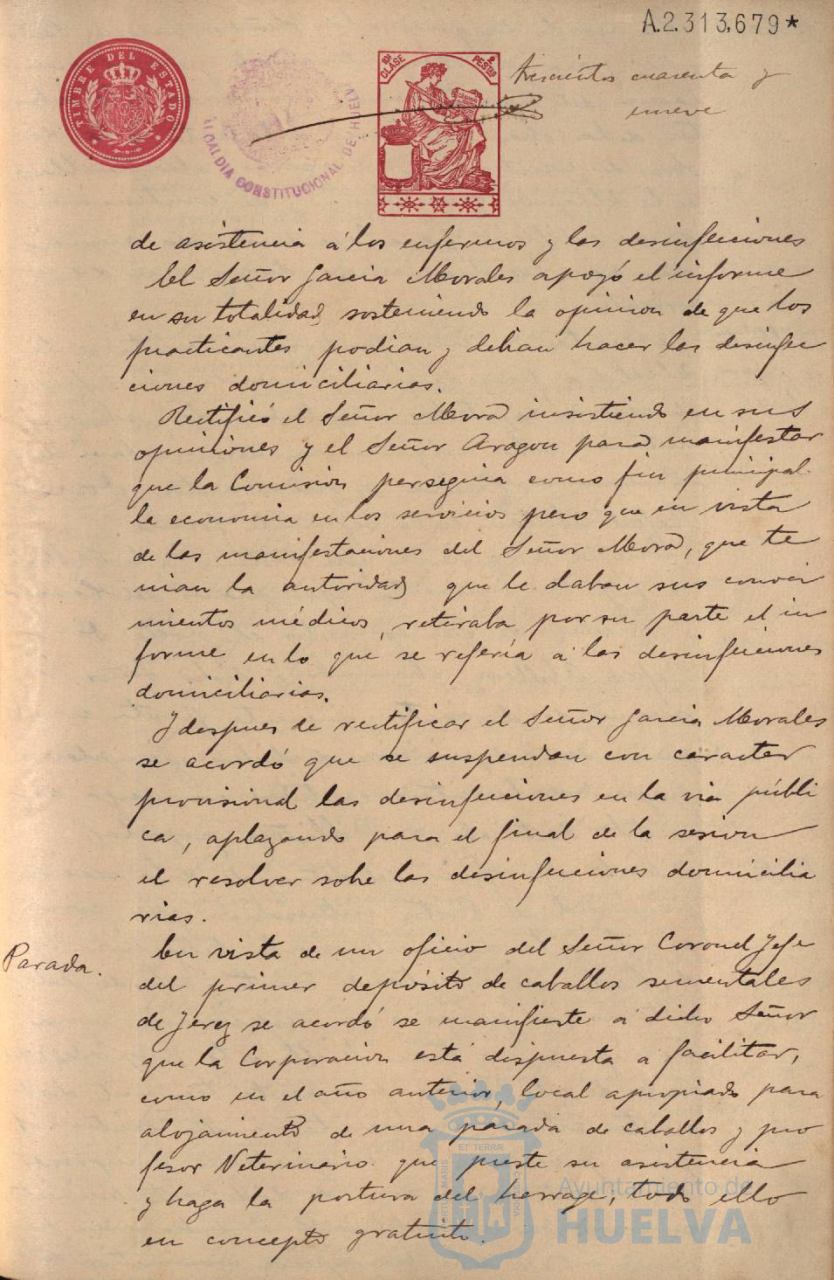 A.2.313.679*
TIMBRE DEL ESTADO
ALCALDIA CONSTITUCIONAL DE HUELV
CLASE
PESTAS
Trescientos cuarenta y
nueve
de asistencia á los enfermos y las desinfecciones
El Señor Garcia Morales apoyó el informe
en su totalidad sosteniendo la opinion de que los
practicantes podian y debian hacer las desinfec
ciones domiciliarias.
Rectificó el Señor Mora insistiendo en sus
opiniones y el Señor Aragon para manifestar
que la Comision perseguia como fin principal
la economia en los servicios pero que en vista
de las manifestaciones del Señor Mora, que te
nian la autoridad que le daban sus conoci
mientos médicos, retiraba por su parte el in
forme en lo que se referia a las desinfecciones
domiciliarias.
Y despues de rectificar el Señor Garcia Morales
se acordó que se suspendan con caracter
provisional las desinfecciones en la via públi
ca, aplazando para el final de la sesion
el resolver sobre las desinfecciones domicilia
rias.
Parada.
En vista de un oficio del Señor Coronel Jefe
del primer depósito de caballos sementales
de Jerez se acordó se manifieste a dicho Señor
que la Corporacion está dispuesta a facilitar,
como en el año anterior, local apropiado para
alojamiento de una parada de caballos y pro
fesor Veterinario que preste su asistencia
y haga la postura del herrage, todo ello
en concepto gratuito.
Ayuntamiento de
HUELVA